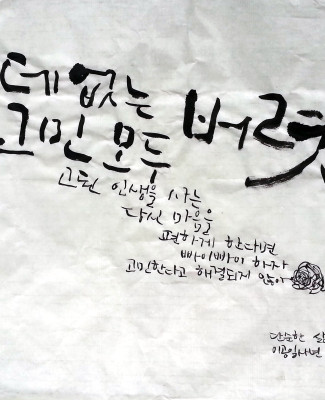 데 없는
고민 모두 버려
고된 인생을 사는
당신 마음을
편하게 한다면
빠이빠이 하자
고민한다고 해결되게 있어
단순한 삶
이공일사년